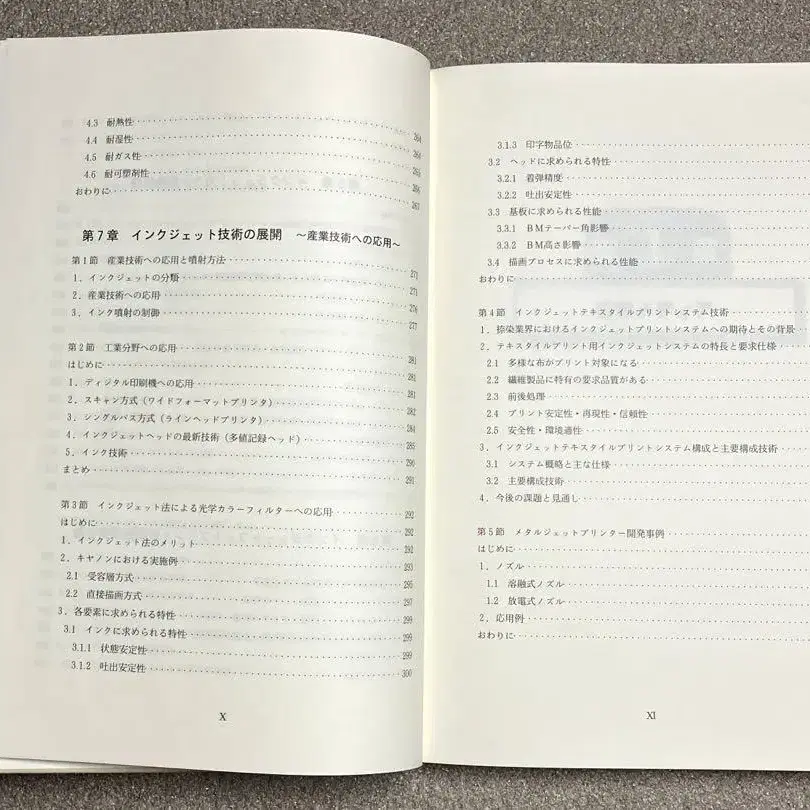 4.3 耐熱性 264
4.4 耐湿性 264
4.5 耐ガス性 265
4.6 耐可塑剤性 266
おわりに 267
第7章 インクジェット技術の展開 ～産業技術への応用～
第1節 産業技術への応用と噴射方法 271
1．インクジェットの分類 271
2．産業技術への応用 276
3．インク噴射の制御 277
第2節 工業分野への応用 281
はじめに 281
1．ディジタル印刷機への応用 281
2．スキャン方式（ワイドフォーマットプリンタ） 282
3．シングルパス方式（ラインヘッドプリンタ） 284
4．インクジェットヘッドの最新技術（多値記録ヘッド） 285
5．インク技術 290
まとめ 291
第3節 インクジェット法による光学カラーフィルターへの応用 292
はじめに 292
1．インクジェット法のメリット 292
2．キヤノンにおける実施例 293
2.1 受容層方式 295
2.2 直接描画方式 297
3．各要素に求められる特性 299
3.1 インクに求められる特性 299
3.1.1 状態安定性 299
3.1.2 吐出安定性 300
X
3.1.3 印字物品位
3.2 ヘッドに求められる特性
3.2.1 着弾精度
3.2.2 吐出安定性
3.3 基板に求められる性能
3.3.1 BMテーパー角影響
3.3.2 BM高さ影響
3.4 描画プロセスに求められる性能
おわりに
第4節 インクジェットテキスタイルプリントシステム技術
1．捺染業界におけるインクジェットプリントシステムへの期待とその背景
2．テキスタイルプリント用インクジェットシステムの特長と要求仕様
2.1 多様な布がプリント対象になる
2.2 繊維製品に特有の要求品質がある
2.3 前後処理
2.4 プリント安定性・再現性・信頼性
2.5 安全性・環境適性
3．インクジェットテキスタイルプリントシステム構成と主要構成技術
3.1 システム概略と主な仕様
3.2 主要構成技術
4．今後の課題と見通し
第5節 メタルジェットプリンター開発事例
はじめに
1．ノズル
1.1 溶融式ノズル
1.2 放電式ノズル
2．応用例
おわりに
XI